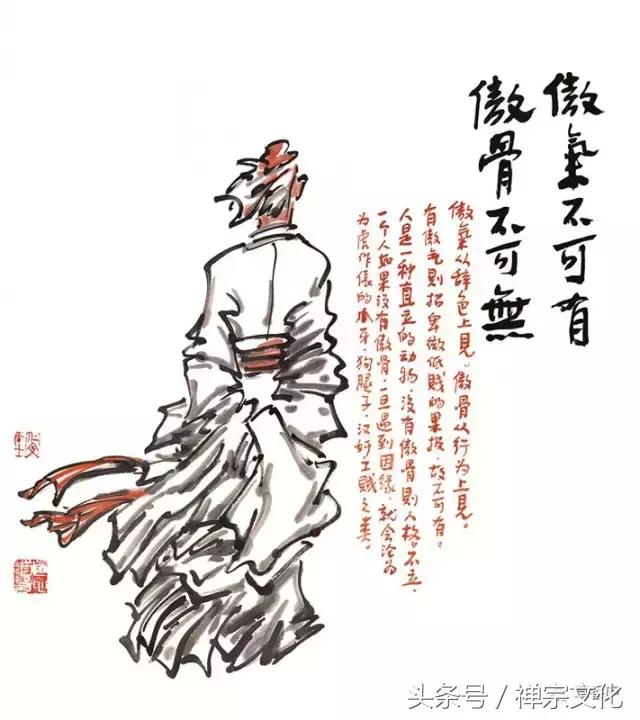 傲氣不可有
傲骨不可無
傲氣从辞色上見。傲骨从行为上見。
有傲气則招卑做低賤的果报，故不可有。
人是一种直立的动物，没有傲骨則人格不立，
一个人如果没有傲骨，一旦遇到因缘，就会沦为
为虎作伥的爪牙，狗腿子，汉奸工賊之类。
头条号／禅宗文化